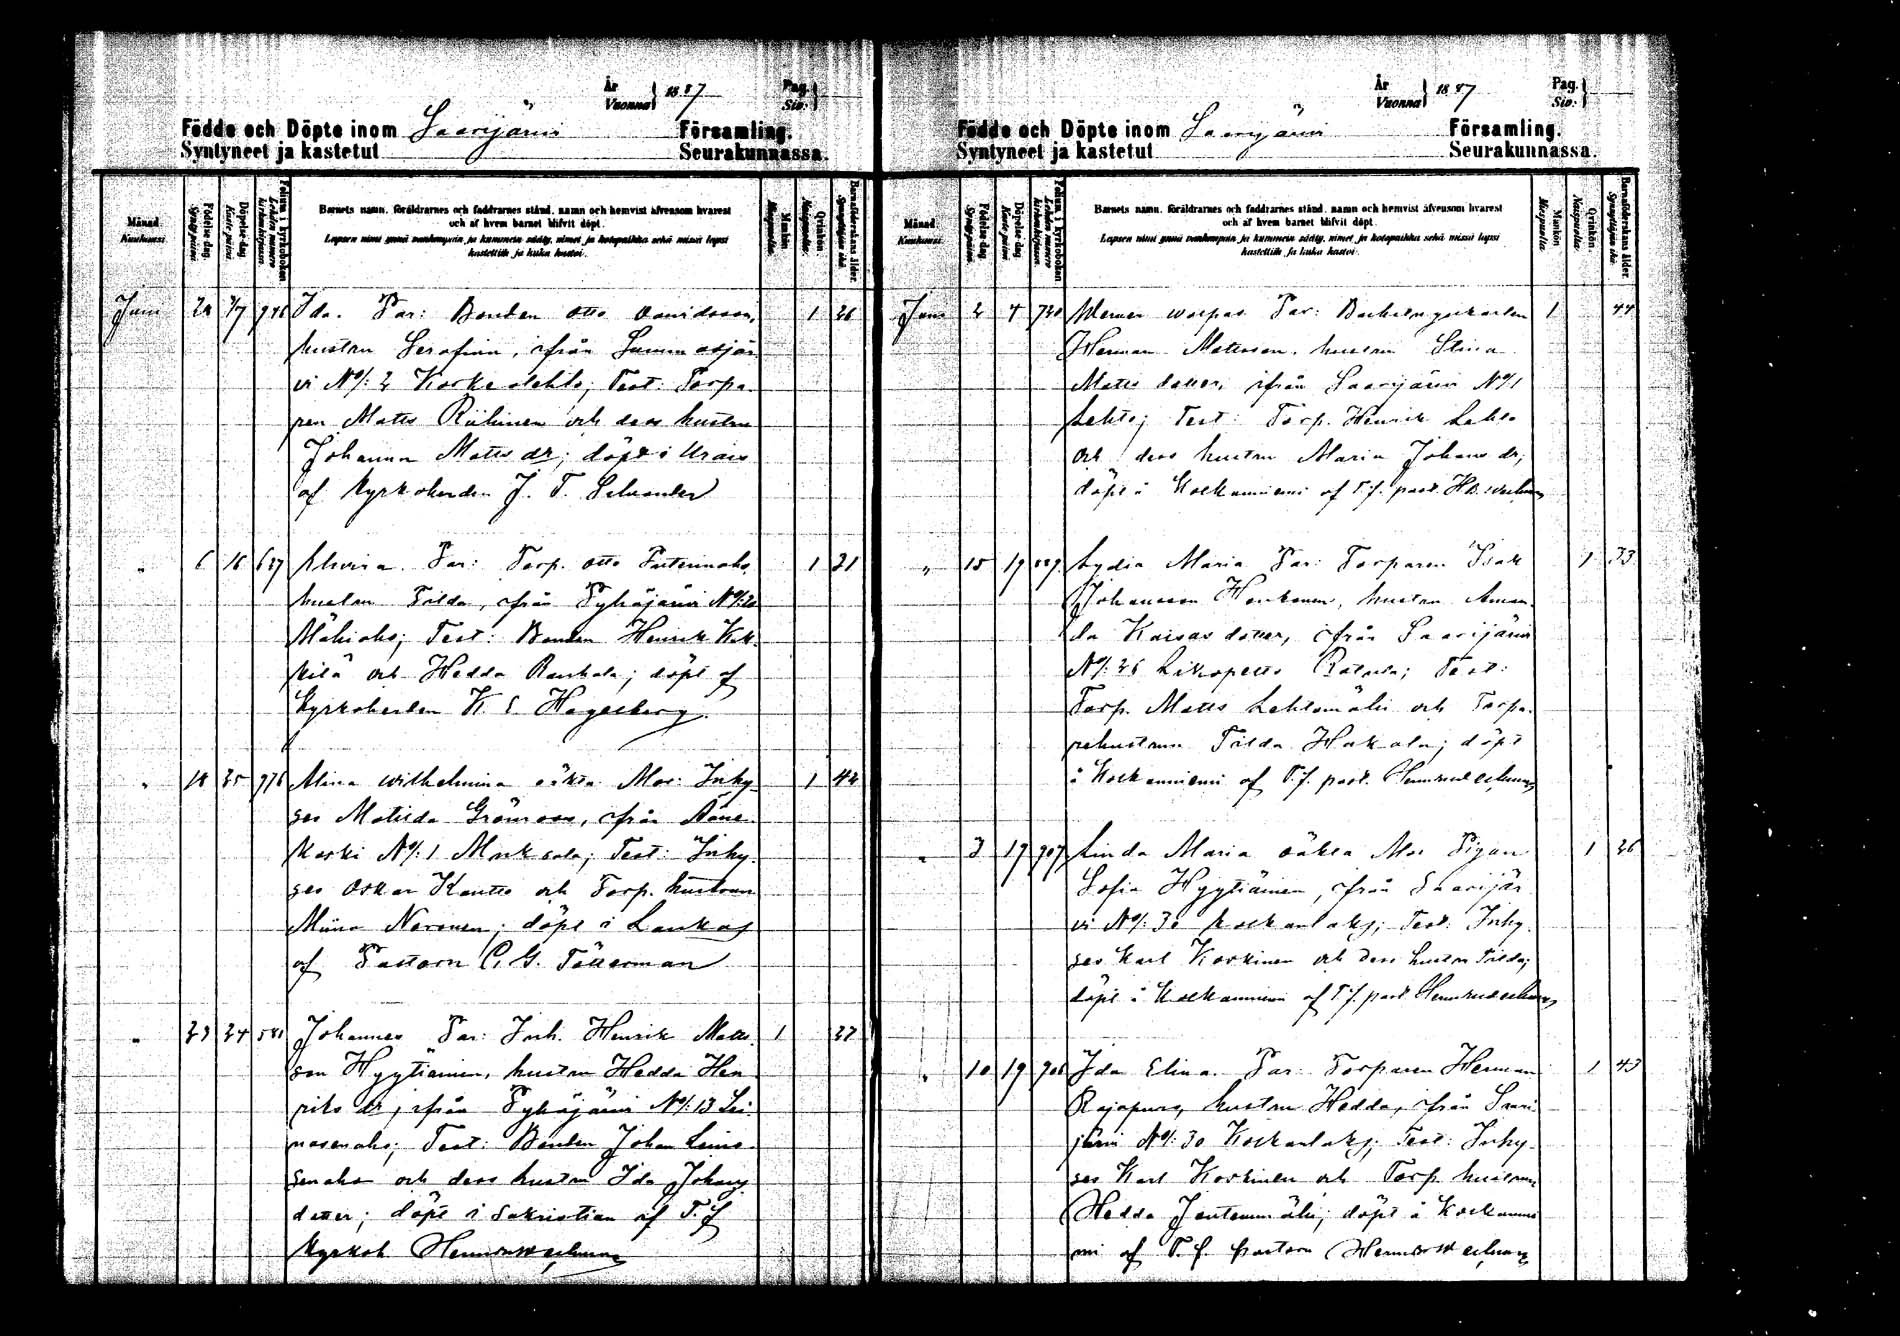 År
Vuonna } 1887
Pag.
Siv: }
Födde och Döpte inom Saarijärvi Församling.
Syntyneet ja kastetut Seurakunnassa.
Månad. Kuukausi.
Födelse-dag. Syntymäpäivä.
Döpelse-dag. Kastepäivä.
Folium i kyrkoboken
Barnets namn, föräldrarnes och faddrarnes stånd, namn och hemvist äfvensom hvarest
och af hvem barnet blifvit döpt.
Lapsen nimi ynnä vanhempain ja kummein sääty, nimet ja kotopaikka sekä missä lapsi
kastettiin ja kuka kastoi.
Mankön Miespuolia.
Qvinkön. Naispuolia.
Barnaföderskans ålder.
Juni 24 3/7 946 Ida. Far: Bonden Otto Davidsson, 1 26
hustru Serafina, ifrån Summasjär
vi No/: 2 Korkeolehto; Test: Torpa
ren Matts Riihinen och dess hustru
Johanna Mattsdr; döpt i Urais
af Kyrkoherden J. F. Selvander
" 6 16 627 Elvira. Far: Torp. Otto 1 31
hustru Tilda, ifrån Pyhäjärvi No/: 20
Mähiaho; Test: Bonden Henrik Kok
kilä och Hedda Rauhala; döpt af
Kyrkoherden K. E. Hagelberg.
" 18 25 776 Mina Wilhelmina oäkta Mor: Inhy 1 42
ses Matilda Grönroos, ifrån Ääne
koski No/: 1 Monksala; Test: Inhy
ses Oskar Kautto och Torp. hustrun
Miina Noronen; döpt i Laukas
af Pastorn C. G. Tötterman
" 23 24 581 Johannes Far: Inh. Henrik Matts 1 27
son Hyytiäinen, hustru Hedda Hen
riks dr, ifrån Pyhäjärvi No/: 13 Lei
nosenaho; Test: Bonden Johan Leino
senaho och dess hustru Ida Johans
dotter; döpt i Sakristian af T. f
Kyrkoh
År
Vuonna } 1887
Pag.
Siv: }
Födde och Döpte inom Saarijärvi Församling.
Syntyneet ja kastetut Seurakunnassa.
Månad. Kuukausi.
Födelse-dag. Syntymäpäivä.
Döpelse-dag. Kastepäivä.
Folium i kyrkoboken
Barnets namn, föräldrarnes och faddrarnes stånd, namn och hemvist äfvensom hvarest
och af hvem barnet blifvit döpt.
Lapsen nimi ynnä vanhempain ja kummein sääty, nimet ja kotopaikka sekä missä lapsi
kastettiin ja kuka kastoi.
Mankön Miespuolia.
Qvinkön. Naispuolia.
Barnaföderskans ålder.
Juni 2 4 720 Werner Far: Backstugukarlen 1 44
Herman Mattsson, hustru Stina
Matts dotter, ifrån Saarijärvi No/1
Lehto; Test: Torp. Henrik Lehto
och dess hustru Maria Johans dr;
döpt i Kolkanniemi af T. f. past.
" 15 19 Lydia Maria Far: Torparen Isak 1 33
Johansson Honkonen, hustru Aman
da Kaisas dotter, ifrån Saarijärvi
No/: 26 Test:
Torp. Matts Lehtomäki och Torpa
rehustrun Tilda Hakala; döpt
i Kolkanniemi af T. f. past.
" 3 19 707 Linda Maria oäkta Mor Pigan 1 26
Sofia Hyytiäinen, ifrån Saarijär
vi No/: 30 Kolkanlaks; Test: Inhy
ses Karl Korkinen och dess hustru Tilda;
döpt i Kolkanniemi af T. f. past
" 10 19 706 Ida Elina. Far: Torparen Herman 1 43
Rajapuro, hustru Hedda, ifrån Saari
järvi No/: 30 Kolkanlaks; Test: Inhy
ses Karl Korkinen och Torp. hustrun
Hedda döpt i Kolkannie
mi af T. f. pastorn